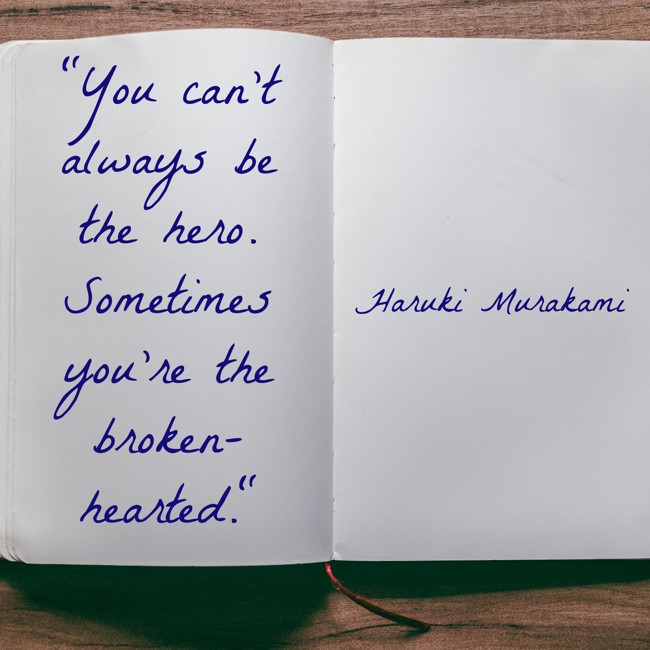 “You can't
always be
the hero.
Sometimes
you're the
broken-
hearted.“
Haruki Murakami